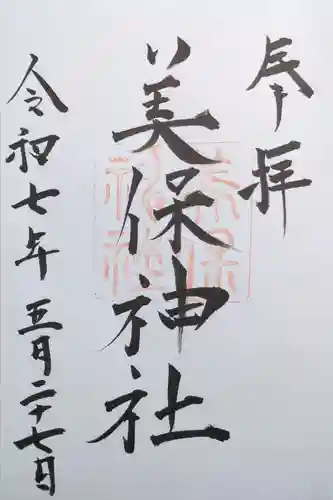 奉拝
美保神社
令和七年五月二十七日